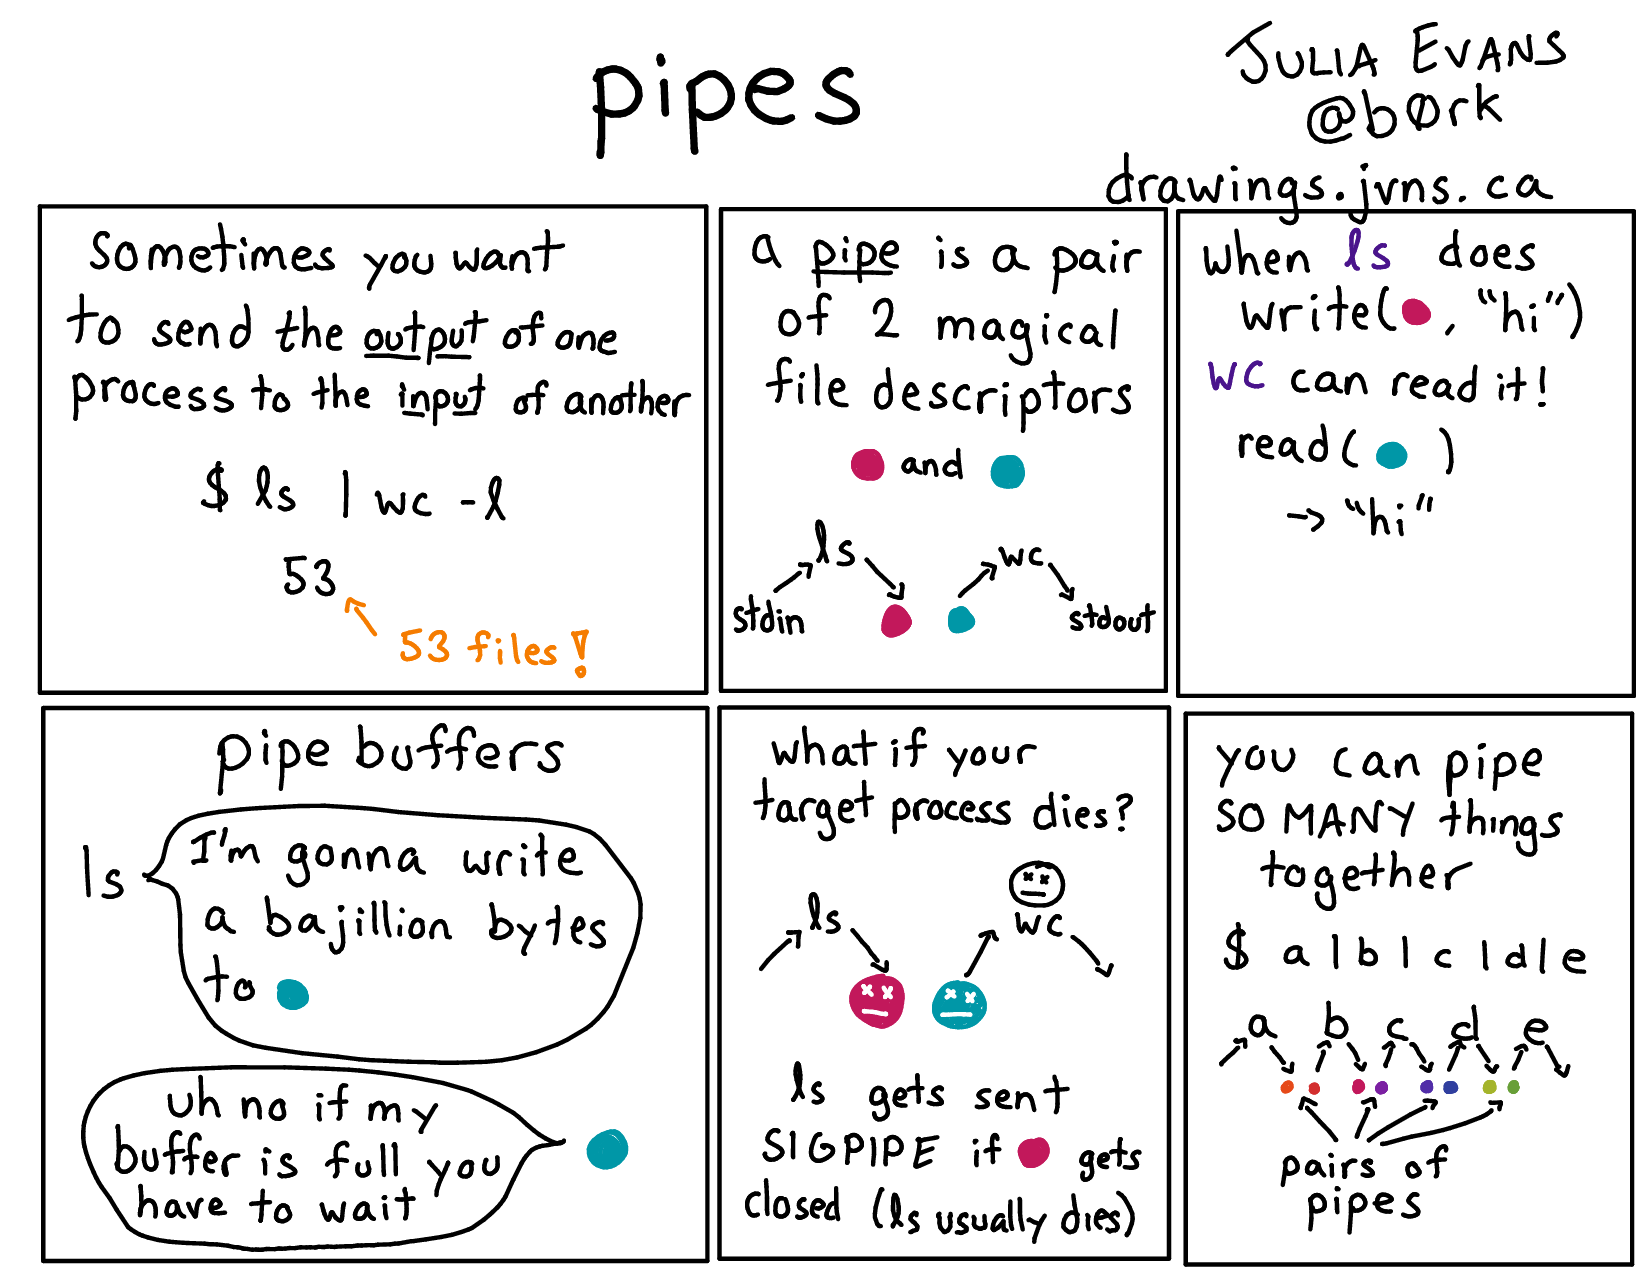 pipes
JULIA EVANS
@b0rk
drawings.jvns.ca
sometimes you want
to send the output of one
process to the input of another
$ ls | wc -l
53
53 files!
a pipe is a pair
of 2 magical
file descriptors
and
ls
wc
stdin
stdout
when ls does
write( , "hi")
wc can read it!
read( )
→ "hi"
pipe buffers
ls
I'm gonna write
a bajillion bytes
to
uh no if my
buffer is full you
have to wait
what if your
target process dies?
ls
wc
ls gets sent
SIGPIPE if gets
closed (ls usually dies)
you can pipe
SO MANY things
together
$ a | b | c | d | e
a b c d e
pairs of
pipes